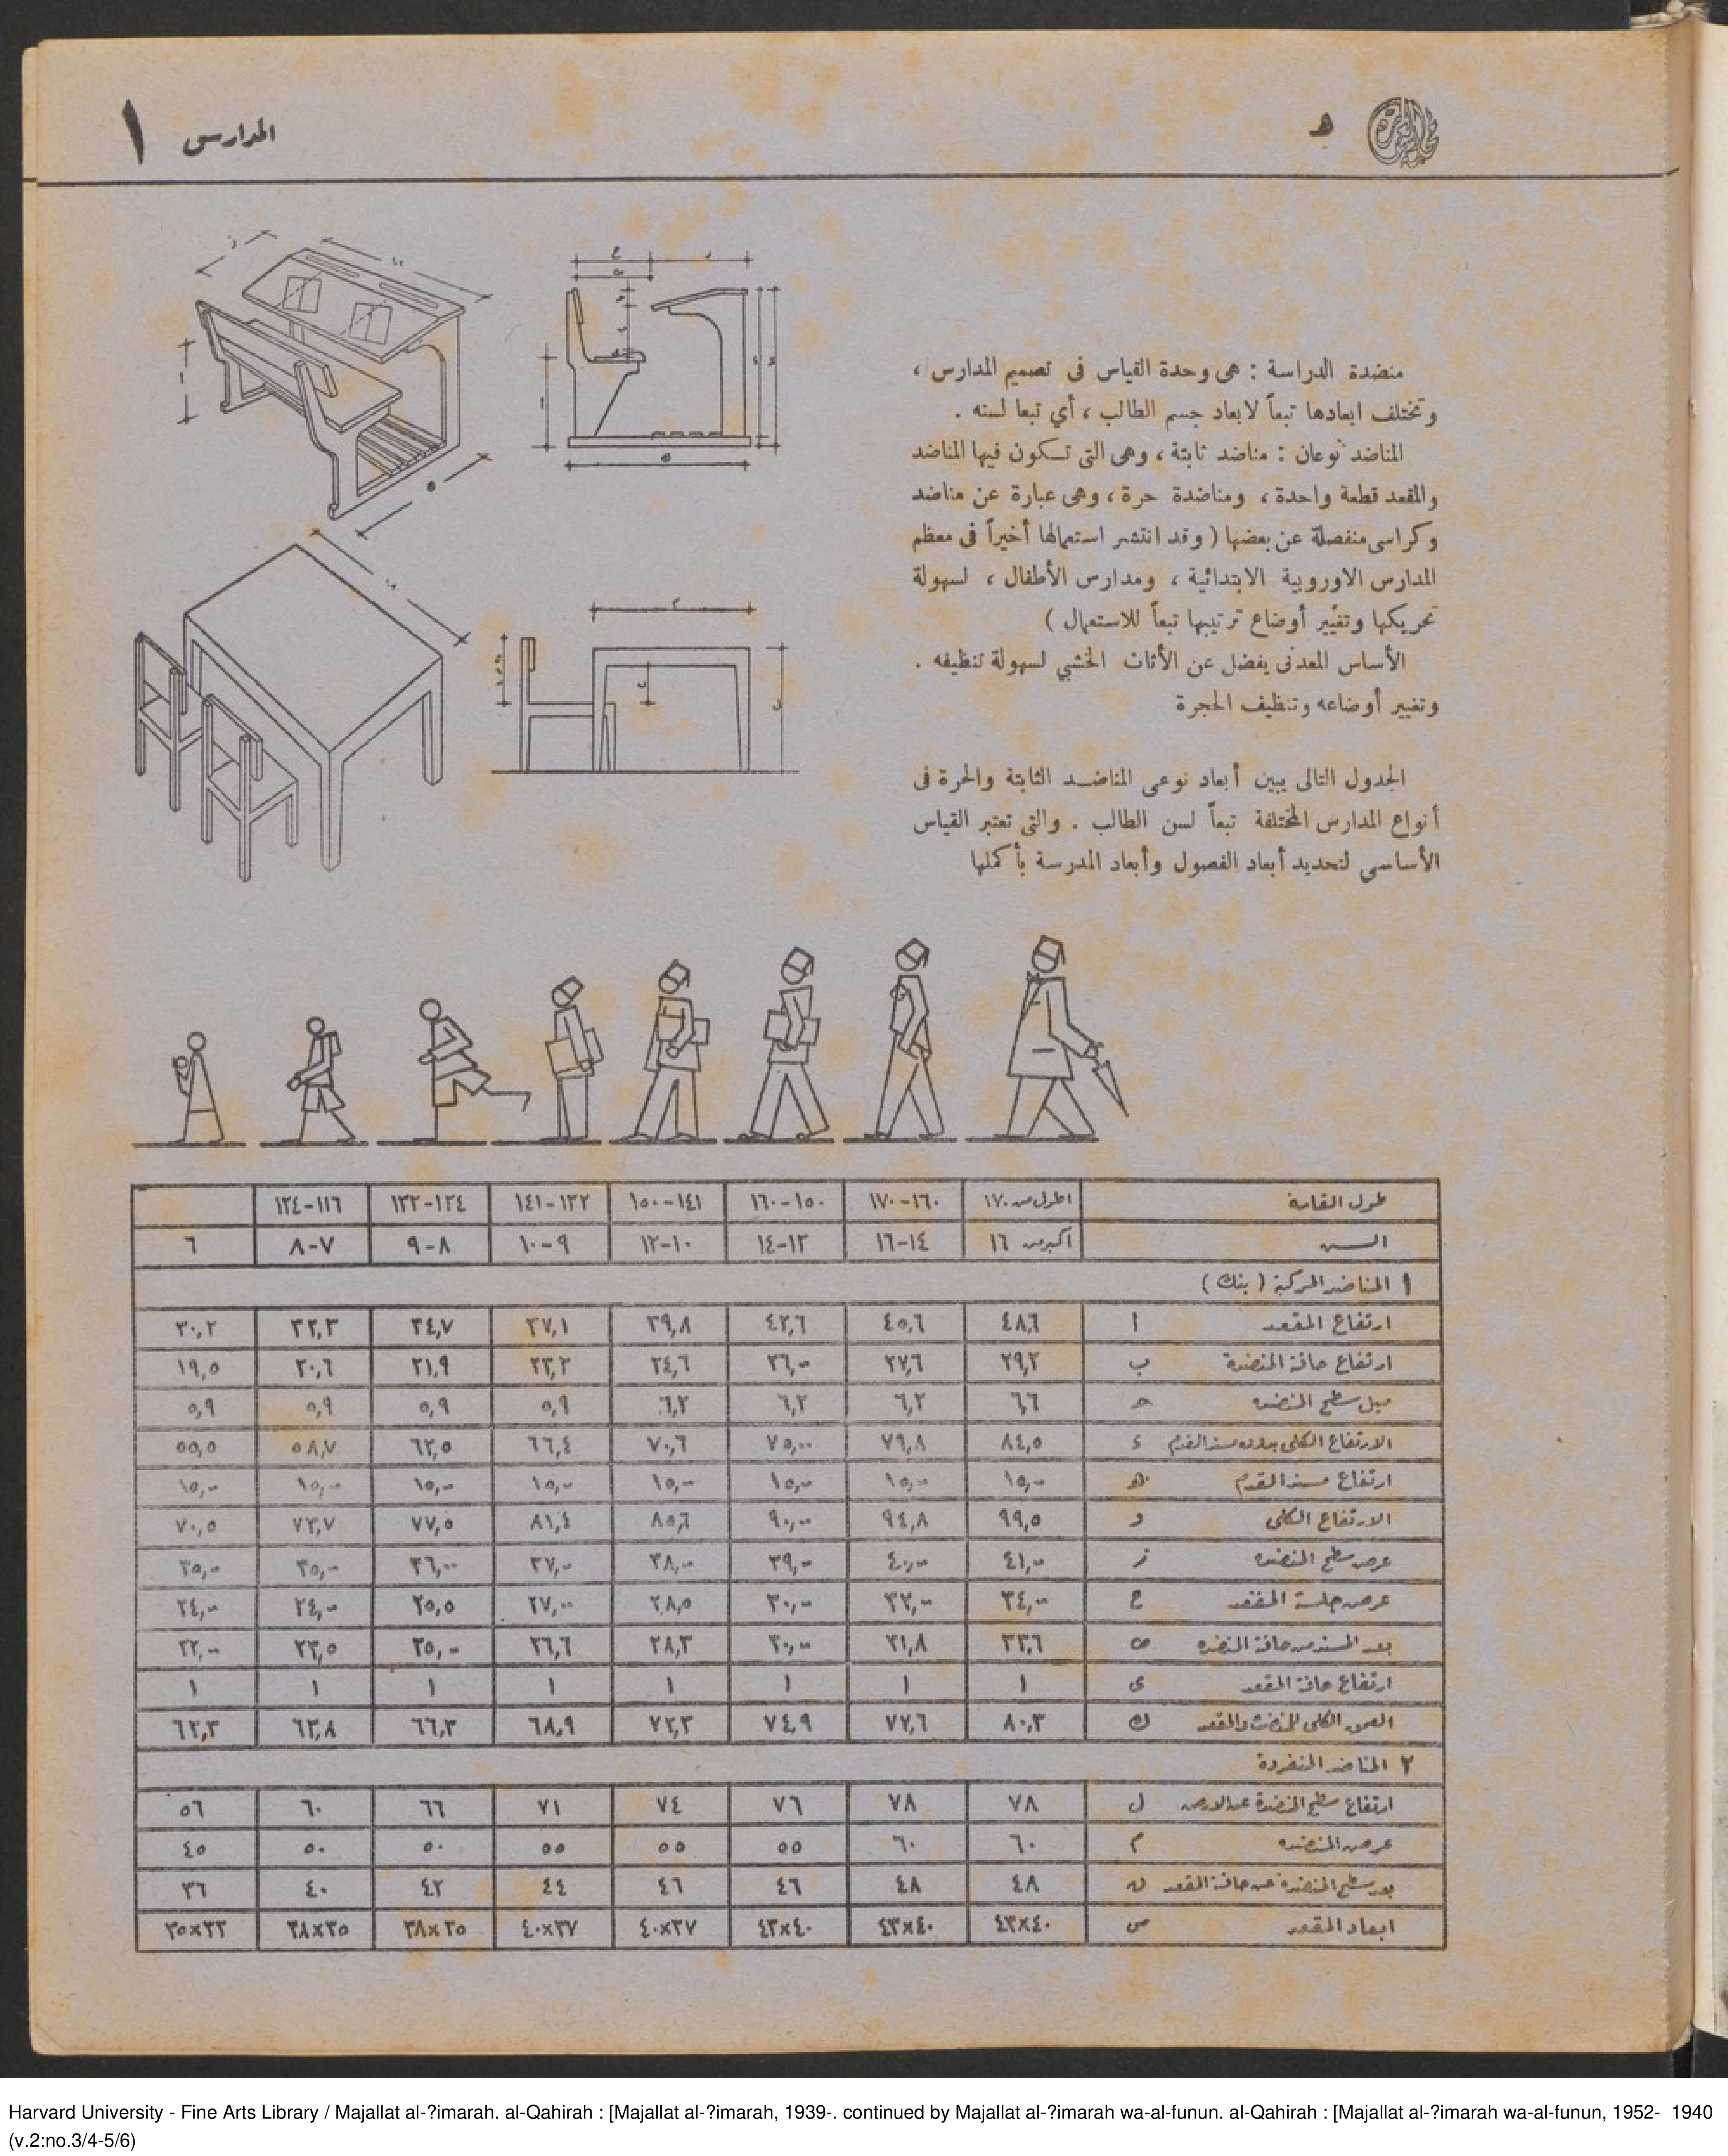 المدارس ١
ه
منضدة الدراسة : هى وحدة القياس فى تصميم المدارس ،
وتختلف ابعادها تبعاً لابعاد جسم الطالب ، أي تبعا لسنه .
المناضد نوعان : مناضد ثابتة ، وهى التى تكون فيها المناضد
والمقعد قطعة واحدة ، ومناضدة حرة ، وهى عبارة عن مناضد
وكراسى منفصلة عن بعضها ( وقد انتشر استعمالها أخيراً فى معظم
المدارس الاوروبية الابتدائية ، ومدارس الأطفال ، لسهولة
تحريكها وتغيير أوضاع ترتيبها تبعاً للاستعمال )
الأساس المعدنى يفضل عن الأثاث الخشبي لسهولة تنظيفه .
وتغيير أوضاعه وتنظيف الحجرة
الجدول التالى يبين أبعاد نوعى المناضد الثابتة والحرة فى
أنواع المدارس المختلفة تبعاً لسن الطالب . والتى تعتبر القياس
الأساسي لتحديد أبعاد الفصول وأبعاد المدرسة بأكملها
طول القامة اطول من ١٧٠ ١٦٠-١٧٠ ١٥٠-١٦٠ ١٤١-١٥٠ ١٣٢-١٤١ ١٢٤-١٣٢ ١١٦-١٢٤
السن اكبر من ١٦ ١٤-١٦ ١٢-١٤ ١٠-١٢ ٩-١٠ ٨-٩ ٧-٨ ٦
١ المناضد المركبة ( بنك )
ارتفاع المقعد ا ٤٨,٦ ٤٥,٦ ٤٢,٦ ٣٩,٨ ٣٧,١ ٣٤,٧ ٣٢,٣ ٣٠,٢
ارتفاع حافة المنضدة ب ٢٩,٢ ٢٧,٦ ٢٦,٠٠ ٢٤,٦ ٢٣,٢ ٢١,٩ ٢٠,٦ ١٩,٥
ميل سطح المنضده ح ٦,٦ ٦,٢ ٦,٢ ٦,٢ ٥,٩ ٥,٩ ٥,٩ ٥,٩
الارتفاع الكلى بدون مسند القدم ء ٨٤,٥ ٧٩,٨ ٧٥,٠٠ ٧٠,٦ ٦٦,٤ ٦٢,٥ ٥٨,٧ ٥٥,٥
ارتفاع مسند القدم ه ١٥,٠٠ ١٥,٠٠ ١٥,٠٠ ١٥,٠٠ ١٥,٠٠ ١٥,٠٠ ١٥,٠٠ ١٥,٠٠
الارتفاع الكلى و ٩٩,٥ ٩٤,٨ ٩٠,٠٠ ٨٥,٦ ٨١,٤ ٧٧,٥ ٧٣,٧ ٧٠,٥
عرض سطح المنضده ز ٤١,٠٠ ٤٠,٠٠ ٣٩,٠٠ ٣٨,٠٠ ٣٧,٠٠ ٣٦,٠٠ ٣٥,٠٠ ٣٥,٠٠
عرض جلسة المقعد ح ٣٤,٠٠ ٣٢,٠٠ ٣٠,٠٠ ٢٨,٥ ٢٧,٠٠ ٢٥,٥ ٢٤,٠٠ ٢٤,٠٠
بعد المسند من حافة المنضده ٣٣,٦ ٣١,٨ ٣٠,٠٠ ٢٨,٣ ٢٦,٦ ٢٥,٠٠ ٢٣,٥ ٢٢,٠٠
ارتفاع حافة المقعد ى ١ ١ ١ ١ ١ ١ ١ ١
العمق الكلى للمنضدة والمقعد ك ٨٠,٣ ٧٧,٦ ٧٤,٩ ٧٢,٣ ٦٨,٩ ٦٦,٣ ٦٣,٨ ٦٢,٣
٢ المناضد المنفردة
ارتفاع سطح المنضدة عن الارض ل ٧٨ ٧٨ ٧٦ ٧٤ ٧١ ٦٦ ٦٠ ٥٦
عرض المنضده م ٦٠ ٦٠ ٥٥ ٥٥ ٥٥ ٥٠ ٥٠ ٤٥
بعد سطح المنضدة عن حافة المقعد ن ٤٨ ٤٨ ٤٦ ٤٦ ٤٤ ٤٢ ٤٠ ٣٦
ابعاد المقعد س ٤٠×٤٣ ٤٠×٤٣ ٤٠×٤٣ ٣٧×٤٠ ٣٧×٤٠ ٣٥×٣٨ ٣٥×٣٨ ٣٣×٣٥
Harvard University - Fine Arts Library / Majallat al-?imarah. al-Qahirah : [Majallat al-?imarah, 1939-. continued by Majallat al-?imarah wa-al-funun. al-Qahirah : [Majallat al-?imarah wa-al-funun, 1952- 1940
(v.2:no.3/4-5/6)